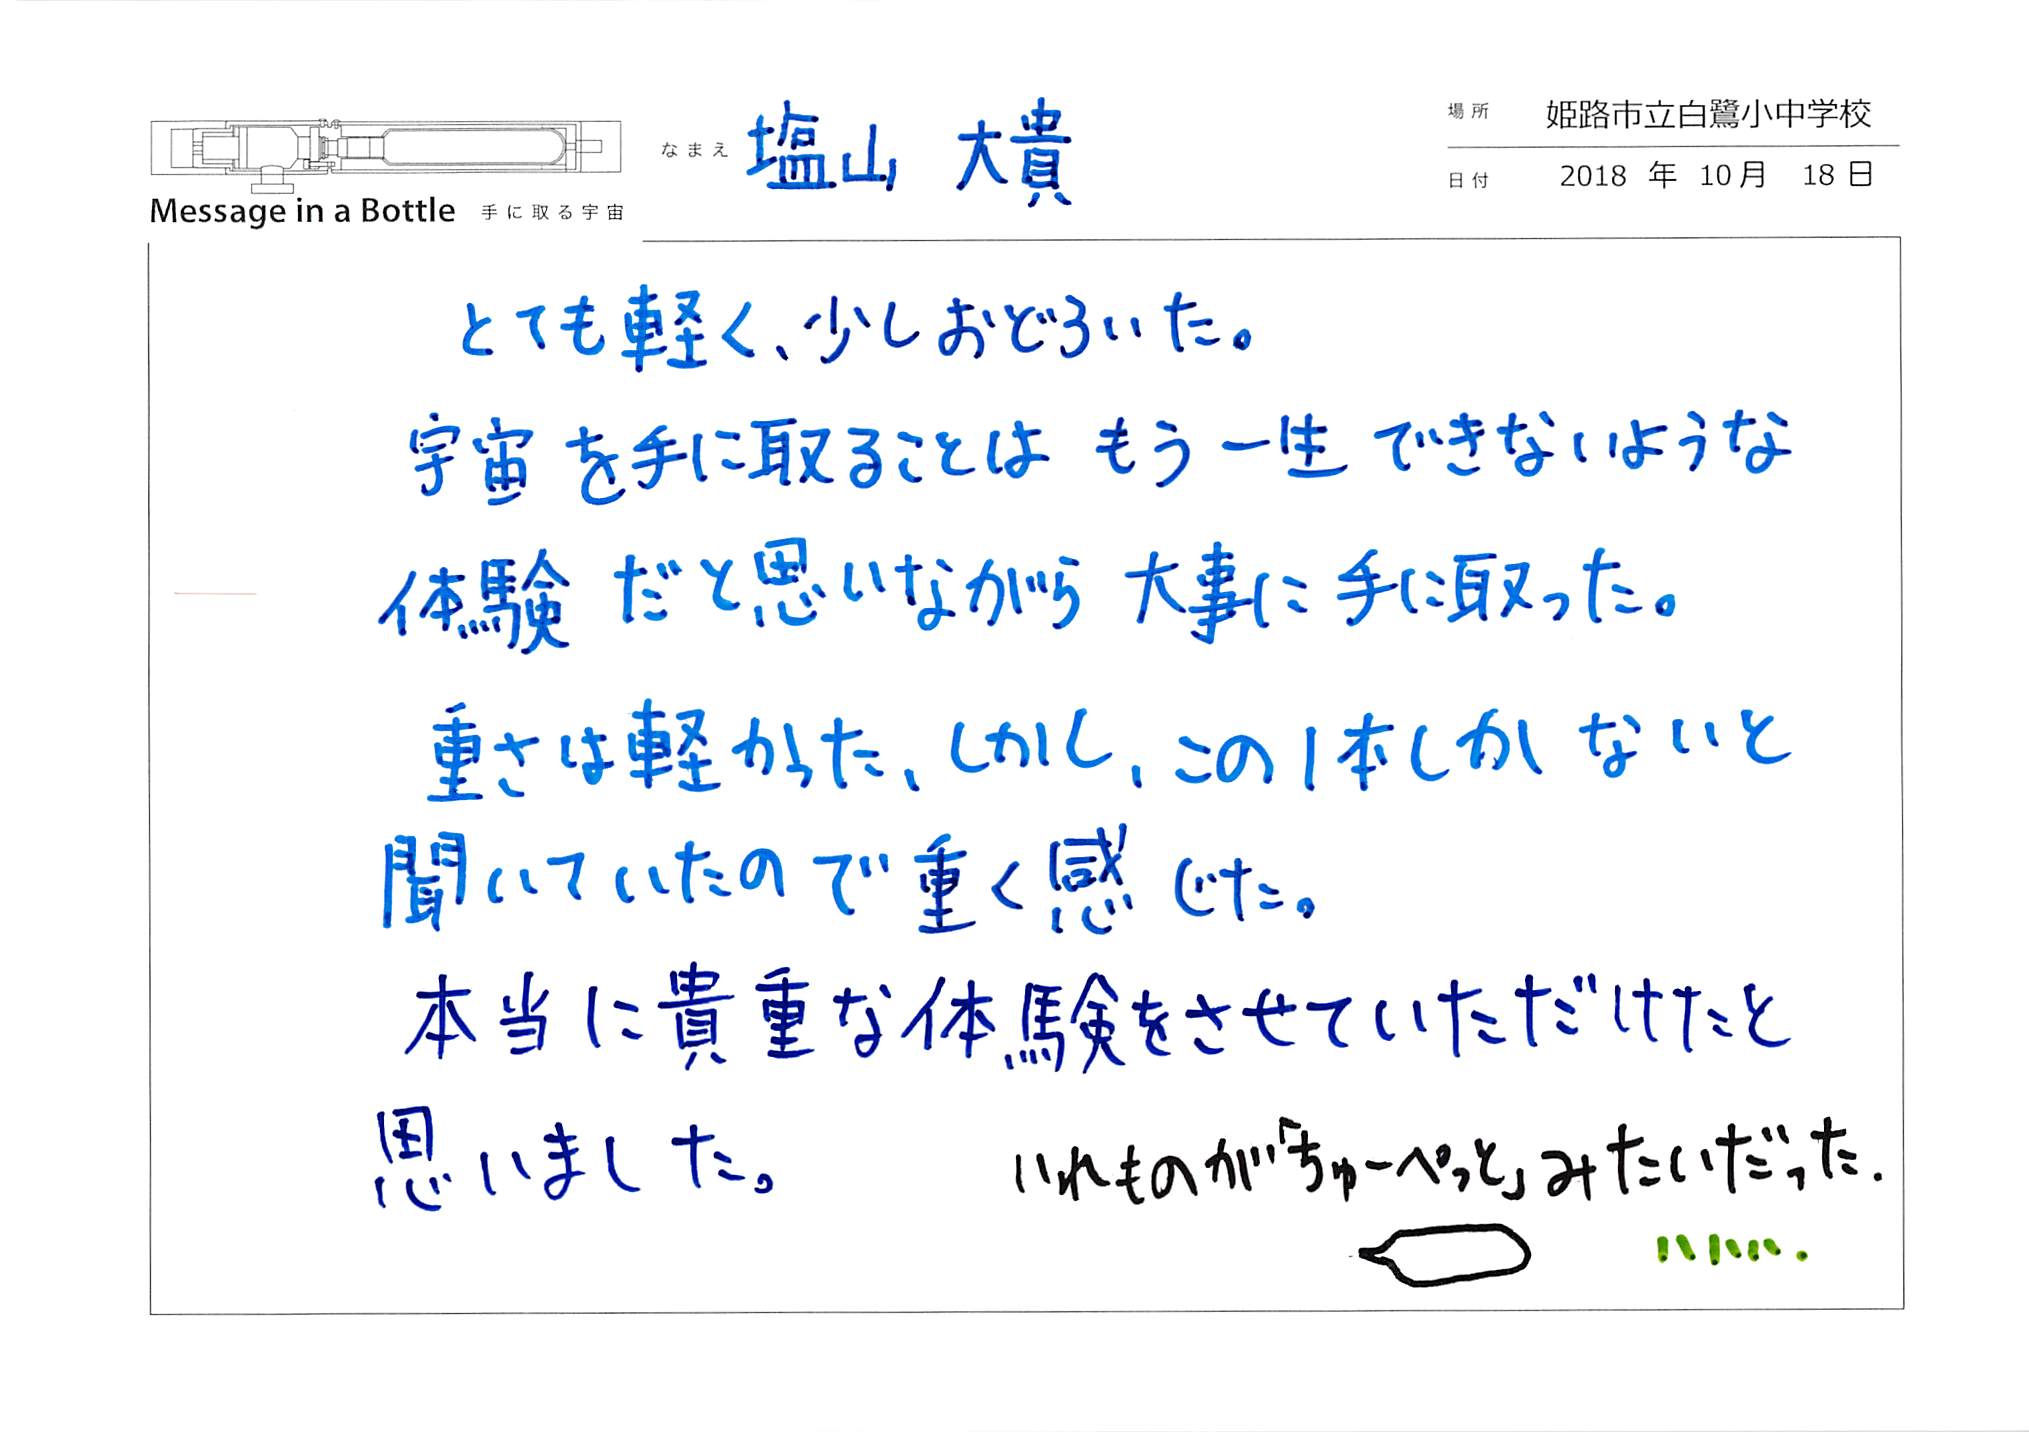 Message in a Bottle 手に取る宇宙
なまえ 塩山 大貴
場所 姫路市立白鷺小中学校
日付 2018 年 10月 18日
とても軽く、少しおどろいた。
宇宙を手に取ることは もう一生できないような
体験だと思いながら 大事に手に取った。
重さは軽かった、しかし、この1本しかないと
聞いていたので重く感じた。
本当に貴重な体験をさせていただけたと
思いました。
いれものが「ちゅーぺっと」みたいだった.